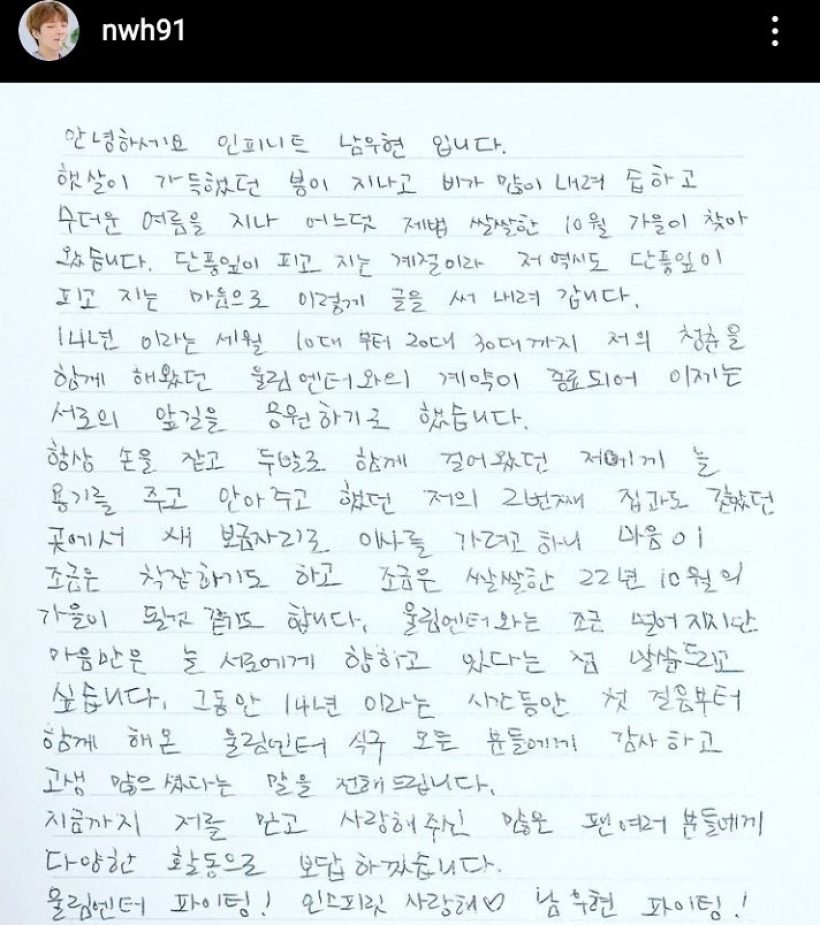 nwh91
안녕하세요 인피니트 남우현 입니다.
햇살이 가득했던 봄이 지나고 비가 많이 내려 습하고
무더운 여름을 지나 어느덧 제법 쌀쌀한 10월 가을이 찾아
왔습니다. 단풍잎이 피고 지는 계절이라 저 역시도 단풍잎이
피고 지는 마음으로 이렇게 글을 써 내려 갑니다.
14년 이라는 세월 10대 부터 20대 30대까지 저의 청춘을
함께 해왔던 울림엔터와의 계약이 종료되어 이제는
서로의 앞길을 응원하기로 했습니다.
항상 손을 잡고 두발로 함께 걸어왔던 저에게 늘
용기를 주고 안아주고 했던 저의 2번째 집과도 같았던
곳에서 새 보금자리로 이사를 가려고 하니 마음이
조금은 착잡하기도 하고 조금은 쌀쌀한 22년 10월의
가을이 될거 같기도 합니다. 울림엔터와는 조금 멀어지지만
마음만은 늘 서로에게 향하고 있다는 점 말씀드리고
싶습니다. 그동안 14년 이라는 시간동안 첫 걸음부터
함께 해온 울림엔터 식구 모든 분들에게 감사하고
고생 많으셨다는 말을 전해드립니다.
지금까지 저를 믿고 사랑해주신 많은 팬여러분들에게
다양한 활동으로 보답하겠습니다.
울림엔터 파이팅! 인스피릿 사랑해♡ 남우현 파이팅!